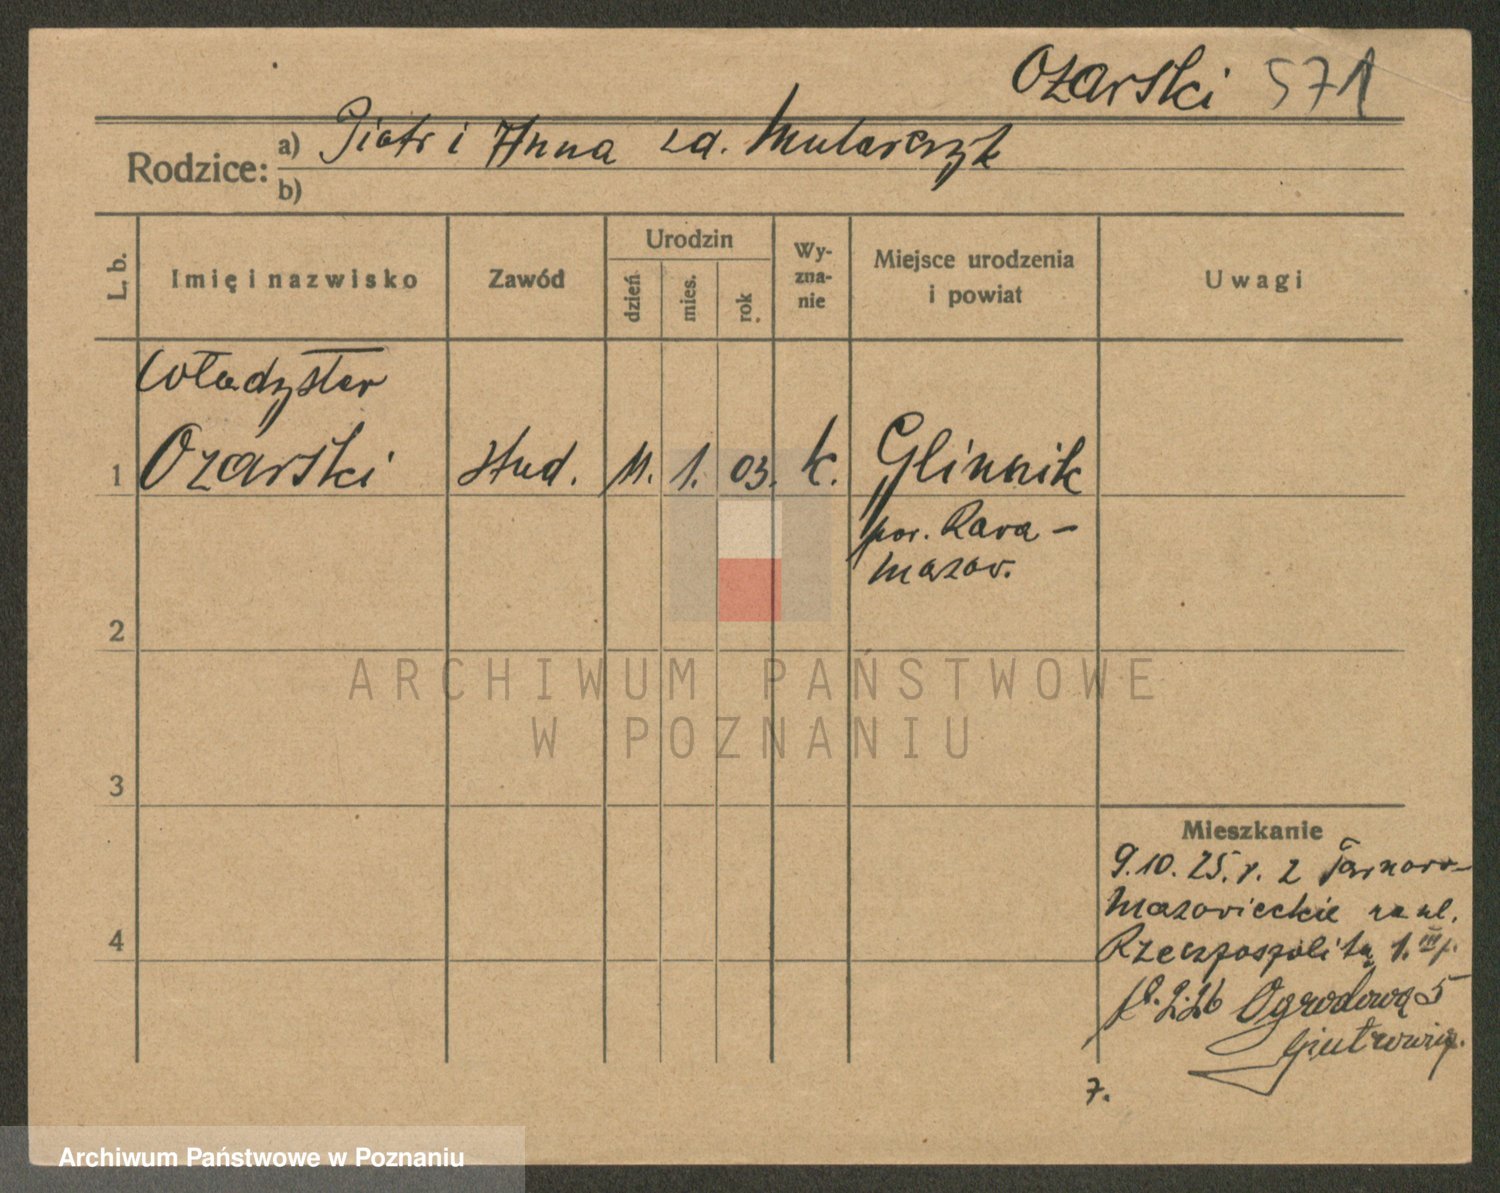 Ozarski 571
Rodzice: a) Piotr i Anna zd. Mularczyk
b)
L. b.
Imię i nazwisko
Zawód
Urodzin
dzień
mies.
rok
Wy-
zna-
nie
Miejsce urodzenia
i powiat
Uwagi
Władysław
1 Ozarski stud. 11. 1. 03. k. Glinnik
pow. Rawa -
Mazow.
2
3
4
Mieszkanie
9.10.25. r. z
Mazowieckie na ul.
Rzeczpospolitą 1. III p.
18.2.26 Ogrodową 5
7.
ARCHIWUM PAŃSTWOWE
W POZNANIU
Archiwum Państwowe w Poznaniu